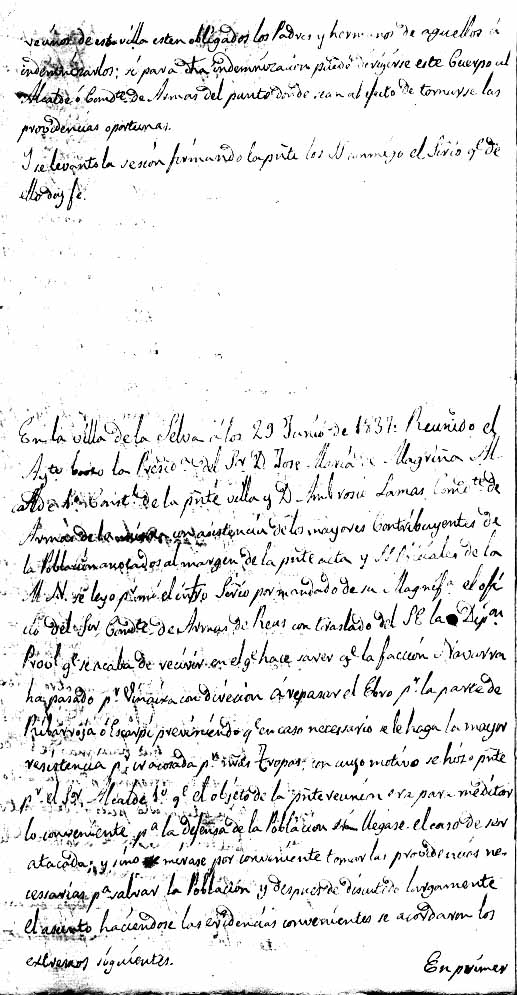 vecinos de esta villa esten obligados los Padres y hermanos de aquellos á
indemnizarlos; si para dha indemnizacion puede dirijirse este Cuerpo al
Alcalde ó Comdte de Armas del punto donde sean al efecto de tomarse las
providencias oportunas.
Y se levantó la sesion firmando la pnte los SS conmigo el Srio qe de
ello doy fe.
En la villa de la Selva á los 29 Junio de 1837: Reunido el
Ayto bajo la Presica del Sr D Jose Maria Magriña Al-
calde 1º Constl de la pnte villa y D. Ambrosio Lamas Comdte de
Armas de la misma con asistencia de los mayores Contribuyentes de
la Poblacion anotados al margen de la pnte acta y SS oficiales de la
M N. se leyo por mi el infro Srio por mandado de su Magnifa el ofi-
cio del Sor Comdte de Armas de Reus con traslado del SE la Dipon
Provl qe se acaba de recivir en el qe hace saver qe la faccion Navarra
ha pasado pr con direccion á repasar el Ebro pr la parte de
Ribarroja ó Escarpi previniendo qe en caso necessario se le haga la mayor
resistencia pr ir acosada pr nras Tropas con cuyo motivo se hizo pnte
pr el Sor Alcalde 1º qe el objeto de la pnte reunion era para meditar
lo conveniente pa la defensa de la Poblacion si llegase el caso de ser
atacada; y sino se mirase por conveniente tomar las providencias ne-
cessarias pa salvar la Poblacion y despues de discutido largamente
el asunto haciendose las evidencias convenientes se acordaron los
extremos siguientes.
En primer